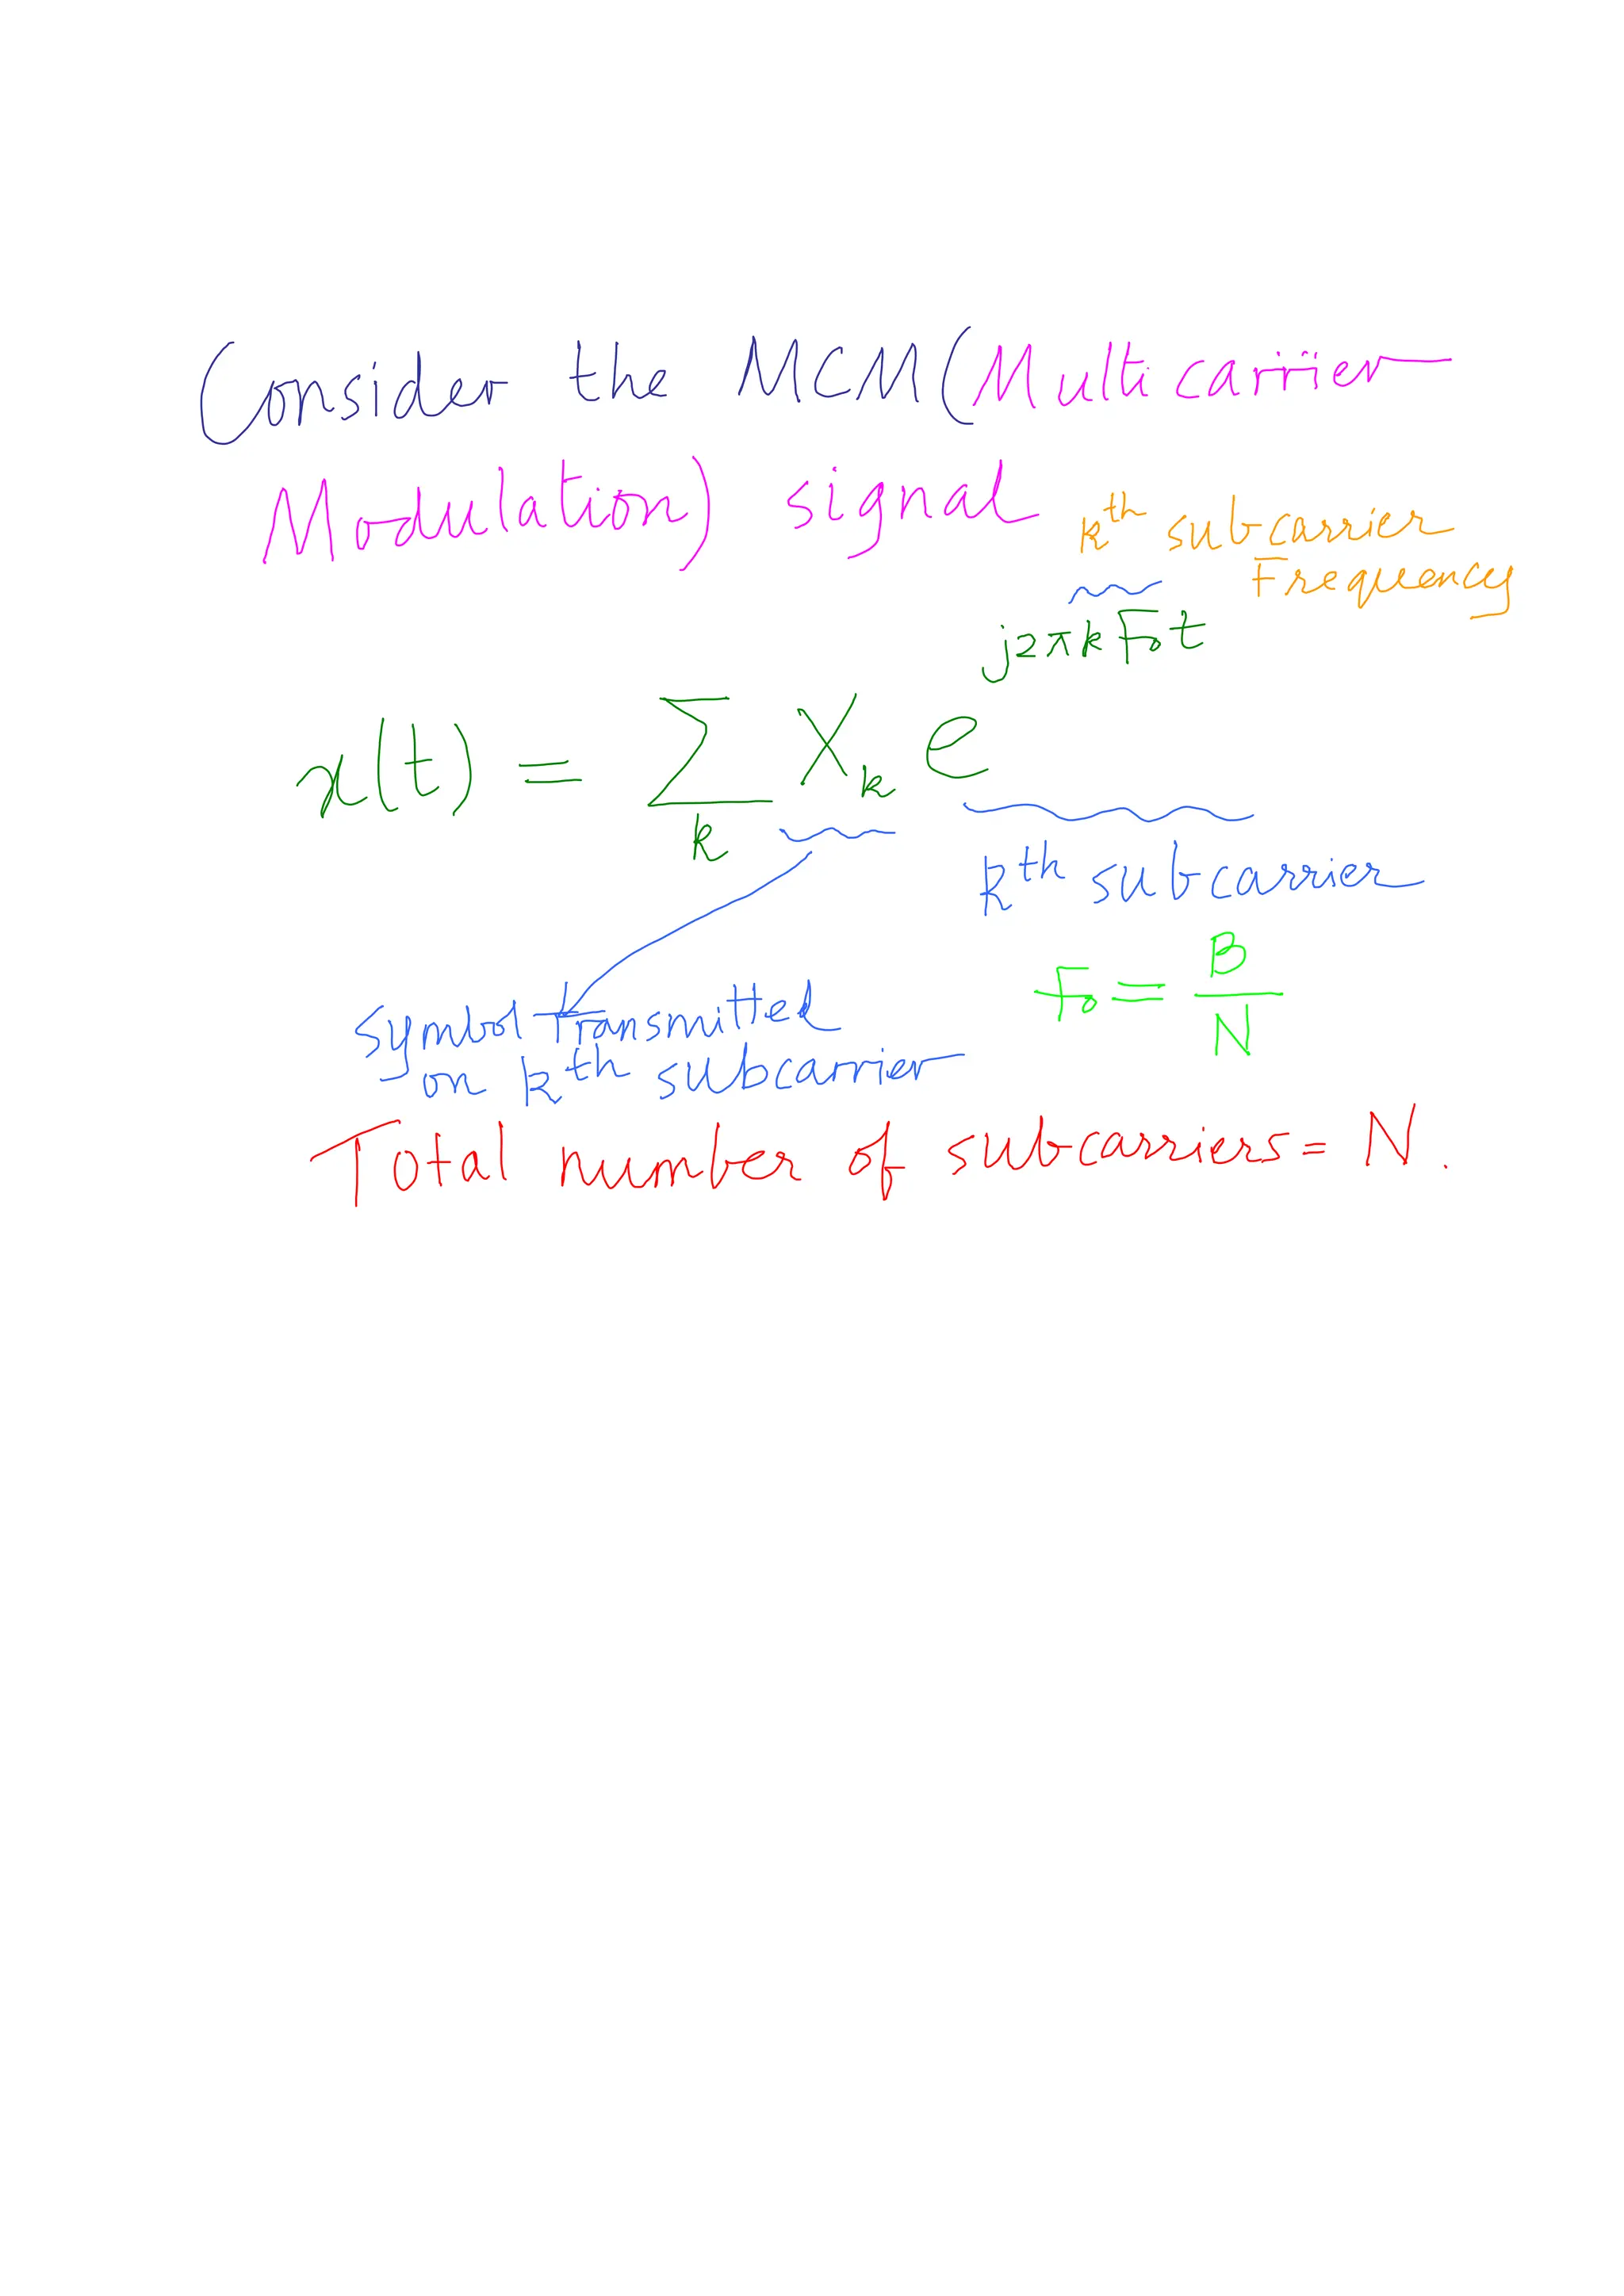 Consider the MCM (Multicarrier
Modulation) signal
kth subcarrier
Frequency
x(t) = Σ_k X_k e^{j2πkF₀t}
kth subcarrier
F₀ = B/N
symbol Transmitted
on kth subcarrier
Total number of subcarriers = N.